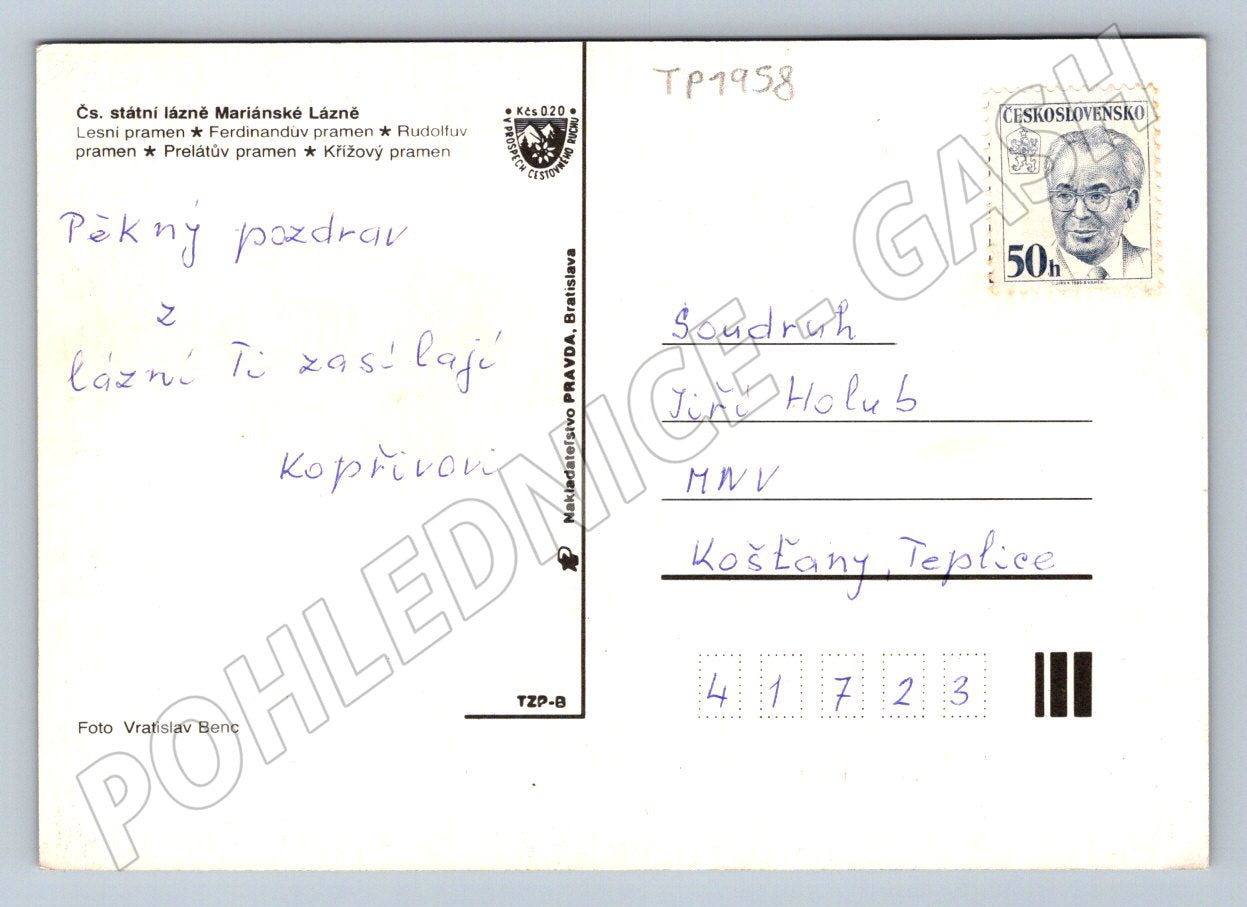 Čs. státní lázně Mariánské Lázně
Lesní pramen ★ Ferdinandův pramen ★ Rudolfuv
pramen ★ Prelátův pramen ★ Křížový pramen
• Kčs 0.20 •
V PROSPĚCH CESTOVNÉHO RUCHU
TP1958
ČESKOSLOVENSKO
50h
Pěkný pozdrav
z
lázní Ti zasílají
Kopřivovi
Nakladateľstvo PRAVDA, Bratislava
Soudruh
Jiří Holub
MNV
Košťany, Teplice
41723
TZP-B
Foto Vratislav Benc
POHLEDNICE - GASH